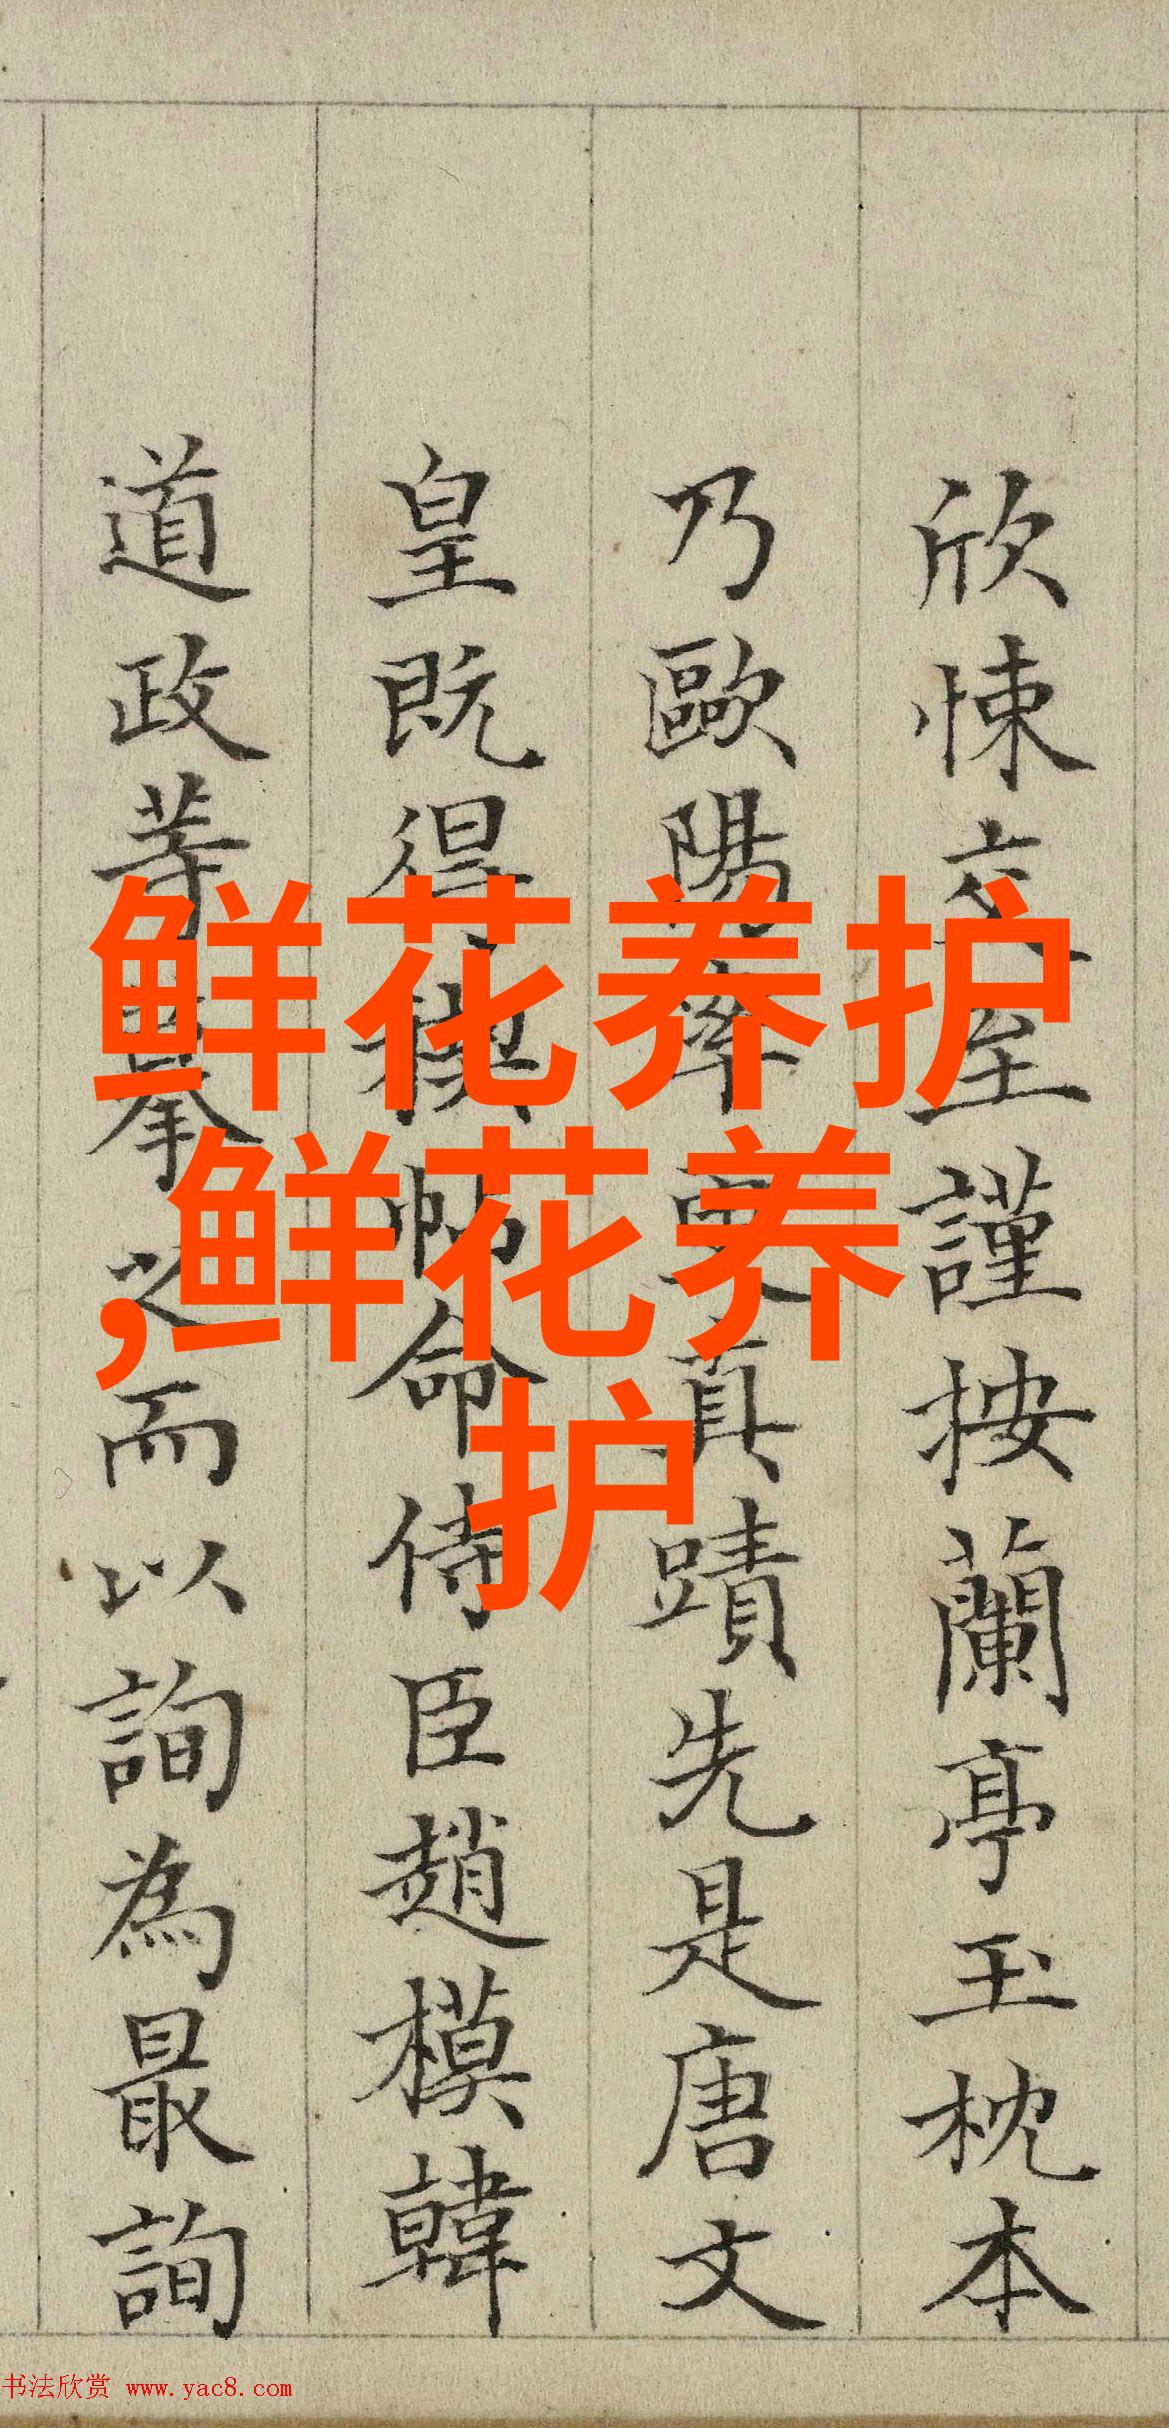 欣悚交至謹按蘭亭玉枕本
乃歐陽率更真蹟先是唐文
皇既得禊帖命侍臣趙模韓
道政等摹之而以詢為最詢
鲜花养护
,鲜花养
护
书法欣赏 www.yac8.com